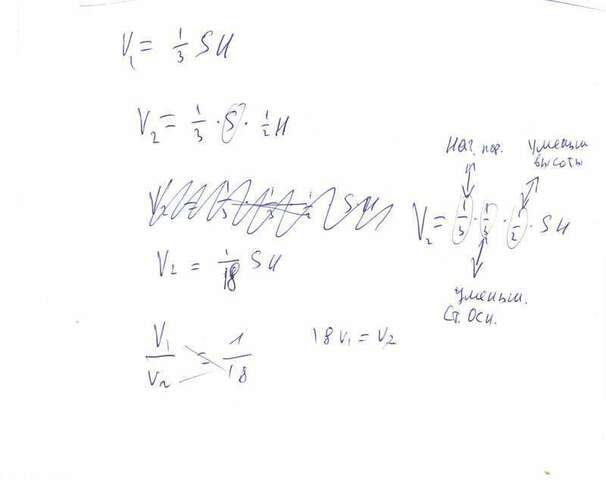 V₁ = 1/3 SH
V₂ = 1/3 · S · 1/2 H
V₂ = 1/18 SH
V₁/V₂ = 1/18
18V₁ = V₂
Нач. пар.
Уменьш
высоты
V₂ = 1/3 · 1/3 · 1/2 · SH
Уменьш.
Ст. Осн.